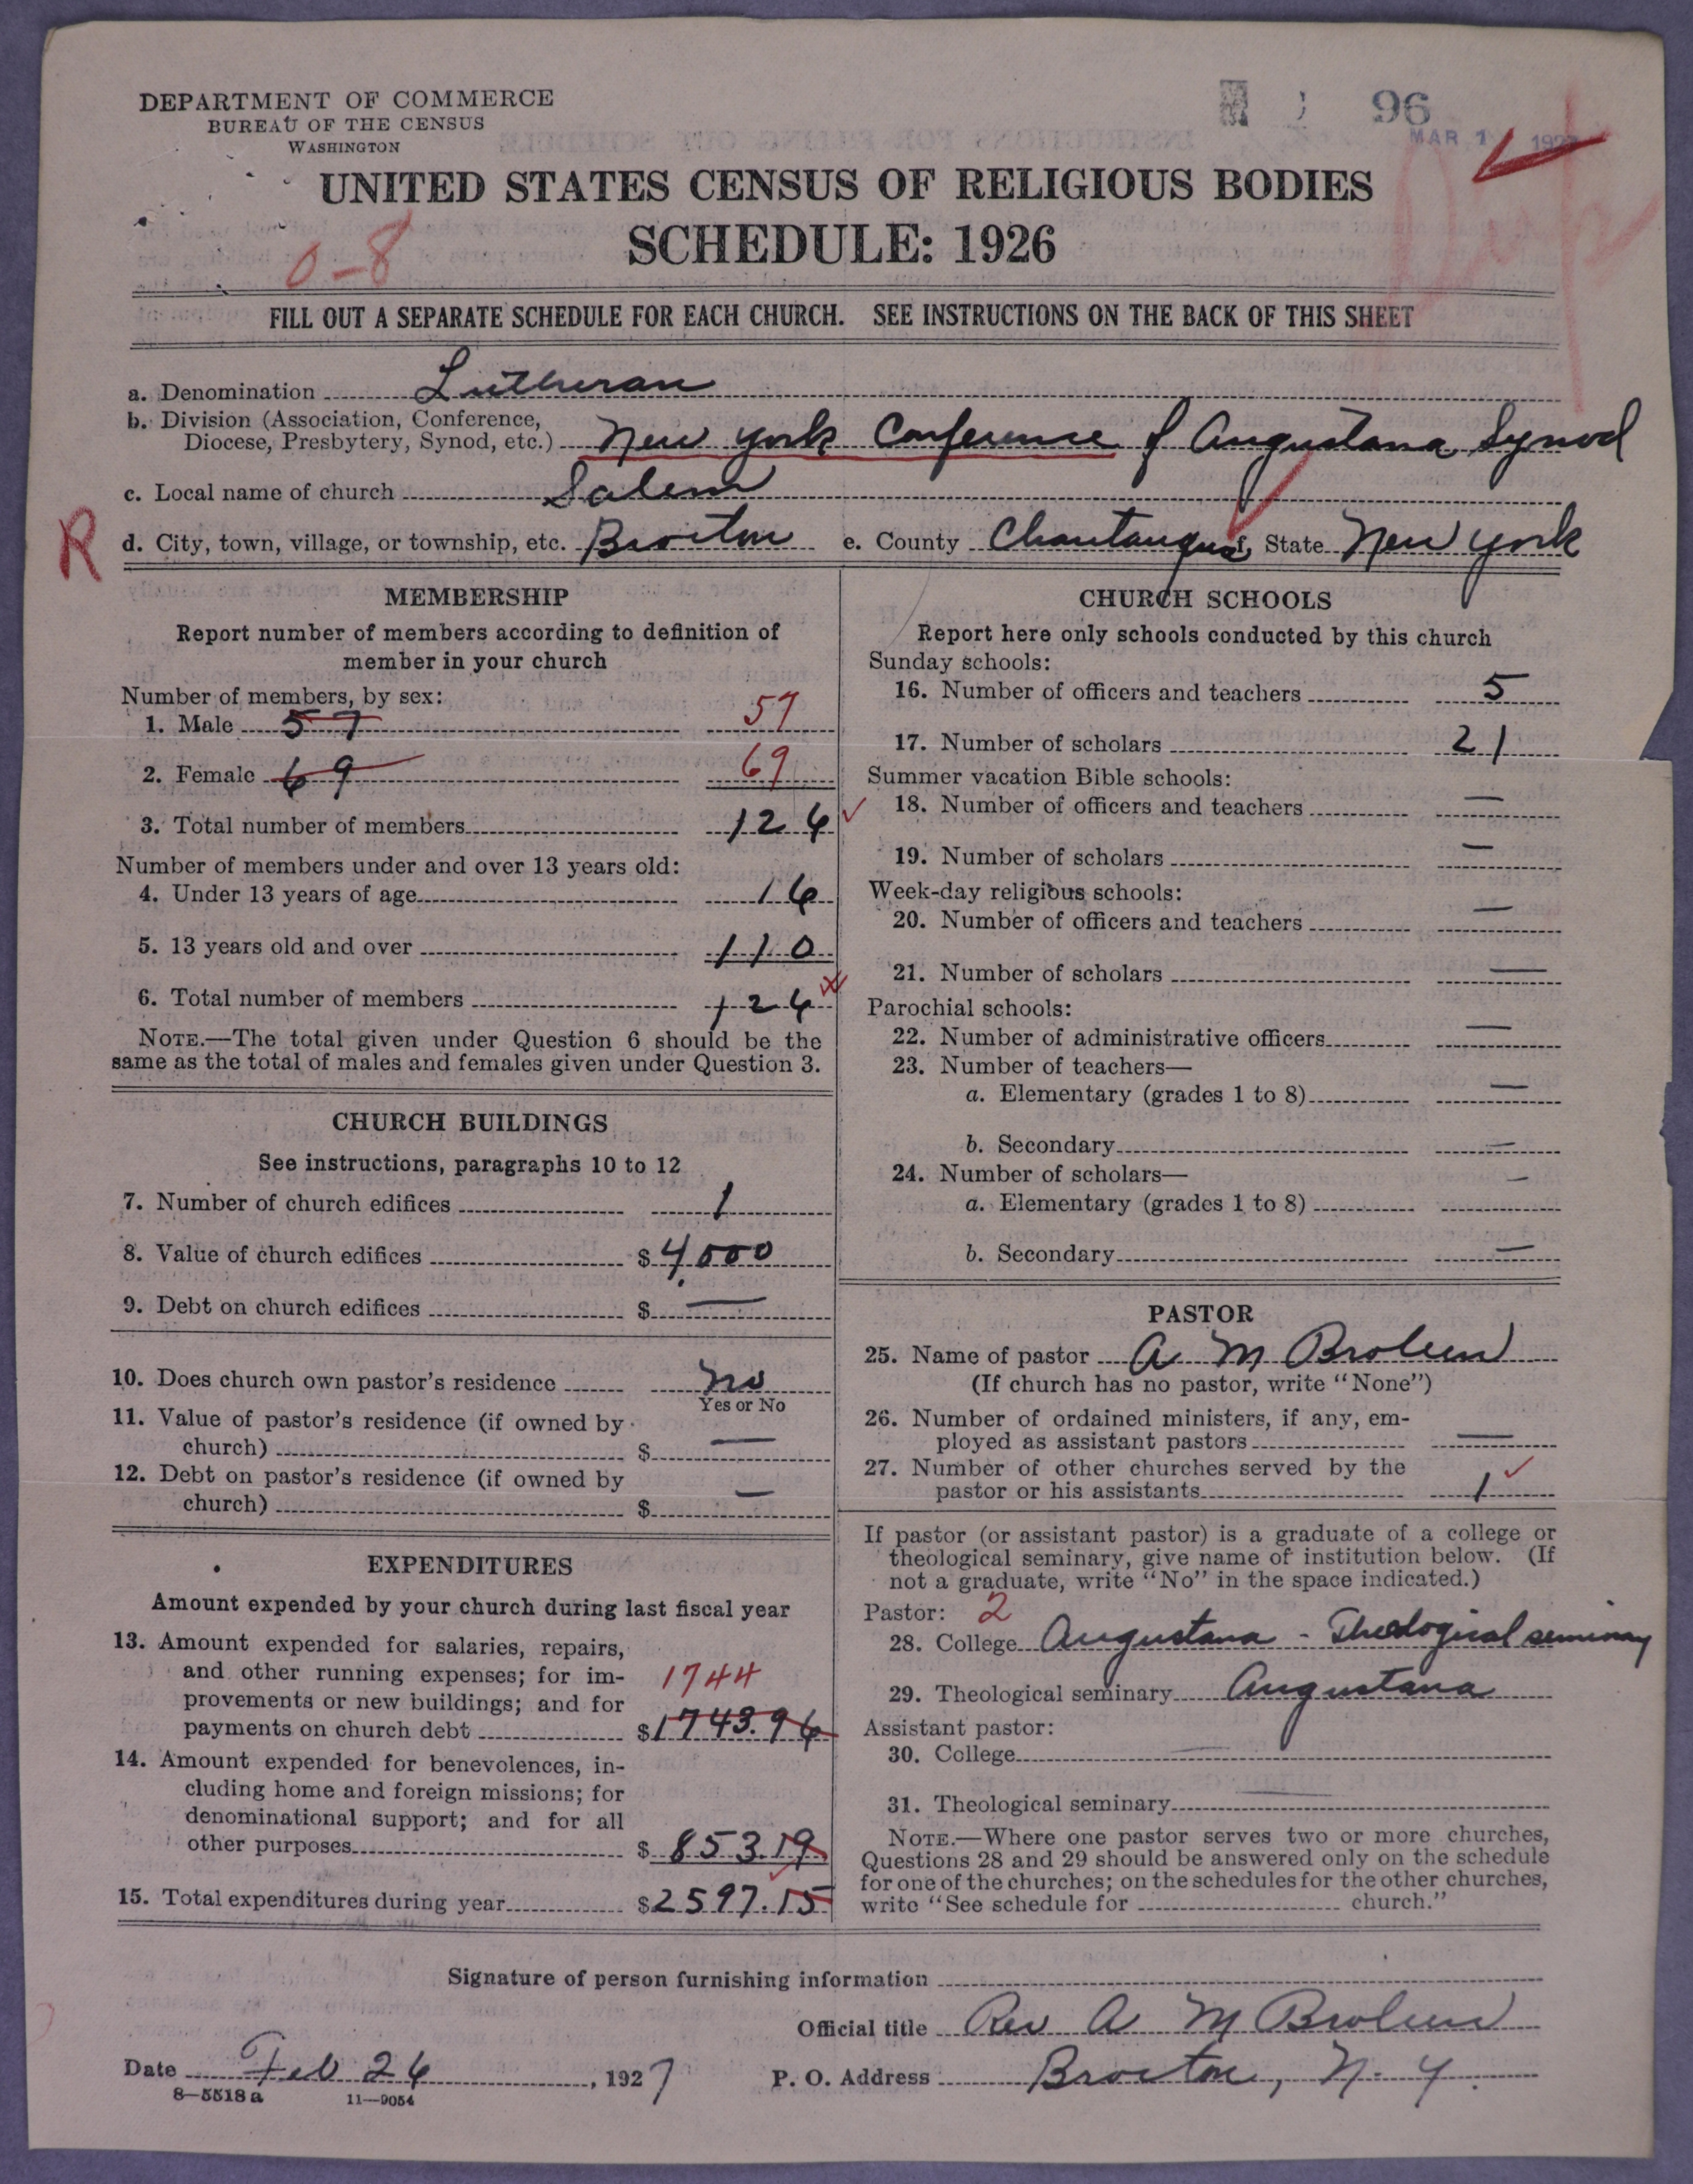 DEPARTMENT OF COMMERCE
BUREAU OF THE CENSUS
WASHINGTON
96
MAR 1 1927
UNITED STATES CENSUS OF RELIGIOUS BODIES
SCHEDULE: 1926
0-8
FILL OUT A SEPARATE SCHEDULE FOR EACH CHURCH. SEE INSTRUCTIONS ON THE BACK OF THIS SHEET
a. Denomination Lutheran
b. Division (Association, Conference,
Diocese, Presbytery, Synod, etc.) New York Conference of Augustana Synod
c. Local name of church Salem
R
d. City, town, village, or township, etc. Brocton e. County Chautauqua f. State New York
MEMBERSHIP
Report number of members according to definition of
member in your church
Number of members, by sex:
1. Male 57 57
2. Female 69 69
3. Total number of members 126
Number of members under and over 13 years old:
4. Under 13 years of age 16
5. 13 years old and over 110
6. Total number of members 126
NOTE.—The total given under Question 6 should be the
same as the total of males and females given under Question 3.
CHURCH BUILDINGS
See instructions, paragraphs 10 to 12
7. Number of church edifices 1
8. Value of church edifices $4,000
9. Debt on church edifices $ —
10. Does church own pastor's residence No
Yes or No
11. Value of pastor's residence (if owned by
church) $ —
12. Debt on pastor's residence (if owned by
church) $ —
EXPENDITURES
Amount expended by your church during last fiscal year
13. Amount expended for salaries, repairs,
and other running expenses; for im-
provements or new buildings; and for
payments on church debt $1743.96
1744
14. Amount expended for benevolences, in-
cluding home and foreign missions; for
denominational support; and for all
other purposes $ 853.19
15. Total expenditures during year $2597.15
CHURCH SCHOOLS
Report here only schools conducted by this church
Sunday schools:
16. Number of officers and teachers 5
17. Number of scholars 21
Summer vacation Bible schools:
18. Number of officers and teachers —
19. Number of scholars —
Week-day religious schools:
20. Number of officers and teachers —
21. Number of scholars —
Parochial schools:
22. Number of administrative officers —
23. Number of teachers—
a. Elementary (grades 1 to 8) —
b. Secondary —
24. Number of scholars—
a. Elementary (grades 1 to 8) —
b. Secondary —
PASTOR
25. Name of pastor A M Broleen
(If church has no pastor, write "None")
26. Number of ordained ministers, if any, em-
ployed as assistant pastors —
27. Number of other churches served by the
pastor or his assistants 1
If pastor (or assistant pastor) is a graduate of a college or
theological seminary, give name of institution below. (If
not a graduate, write "No" in the space indicated.)
Pastor: 2
28. College Augustana - Theological seminary
29. Theological seminary Augustana
Assistant pastor:
30. College
31. Theological seminary
NOTE.—Where one pastor serves two or more churches,
Questions 28 and 29 should be answered only on the schedule
for one of the churches; on the schedules for the other churches,
write "See schedule for church."
Signature of person furnishing information
Official title Rev A M Broleen
Date Feb 26, 1927 P. O. Address Brocton, N. Y.
8-5518 a 11-9054